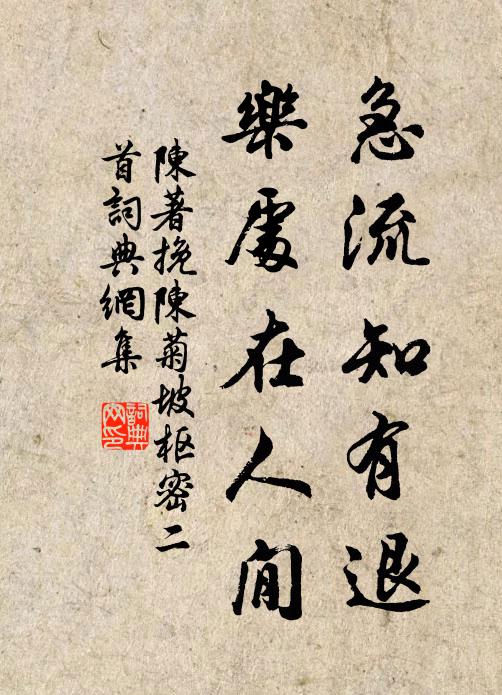 急流知有退
樂處在人間
陳著挽陳菊坡枢密二
首詞典網集
詞典
网印